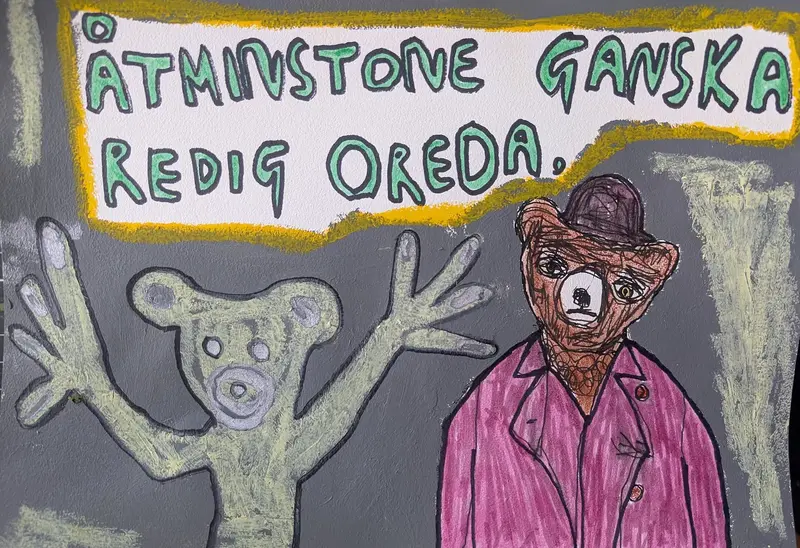 ÅTMINSTONE GANSKA
REDIG OREDA.